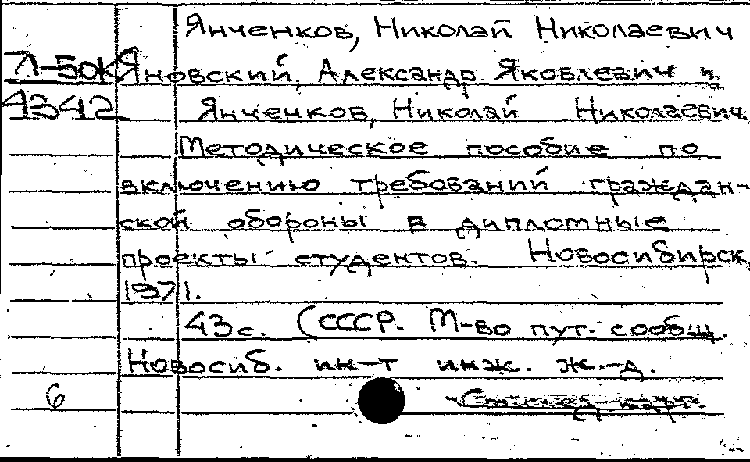 Янченков, Николай Николаевич
Л-50К Яновский, Александр Яковлевич и
4342 Янченков, Николай Николаевич.
Методическое пособие по
включению требований граждан-
ской обороны в дипломные
проекты студентов. Новосибирск,
1971.
43с. (СССР. М-во пут. сообщ.
Новосиб. ин-т инж. ж.-д.
6